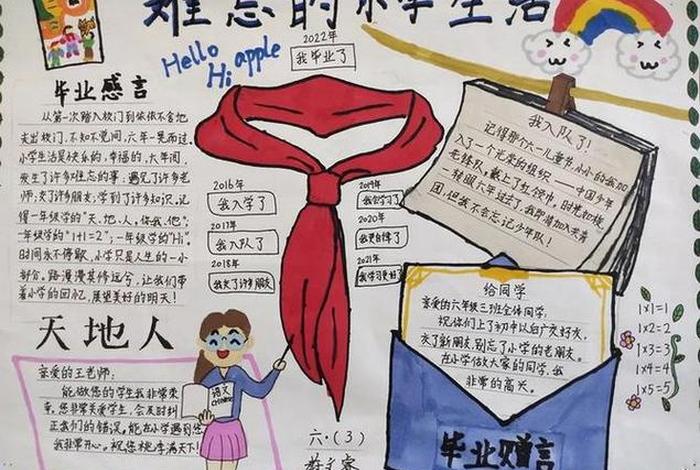 难忘的小学生活
Hello
Hi apple
2022年
我毕业了
毕业感言
从第一次踏入校门到依依不舍地
走出校门,不知不觉间,六年一晃而过。
小学生活是快乐的,幸福的,六年间,
发生了许多难忘的事;遇见了许多老
师;交了许多朋友;学到了许多知识。记
得一年级学的“天,地,人,你,我,他”;
一年级学的“1+1=2”;一年级学的“Hi”。
时间永不停歇,小学只是人生的一小
部分。路漫漫其修远兮,让我们带
着小学的回忆,展望美好的明天!
2016年
我入学了
2017年
我入队了
2018年
我交了许多朋友
2019年
我会学习了
2020年
我更自律了
2021年
我学习更好了
我入队了!
记得那个六一儿童节,小小的我加
入了一个光荣的组织——中国少年
先锋队,戴上了红领巾,时光如梭,
一转眼六年过去了,我即将加入共青
团,但我不会忘记少年队!
给同学
亲爱的六年级三班全体同学:
祝你们上了初中以后广交好友,
交了新朋友,别忘了小学的老朋友。
在小学做大家的同学,我
非常的高兴。
毕业赠言
1×1=1
1×2=2
1×3=3
1×4=4
1×5=5
天地人
亲爱的王老师:
能做您的学生我非常荣
幸,您非常关爱学生,会及时纠
正我们的错误,能在小学遇到您
我非常开心。祝您桃李满天下!
语文
六·(3)